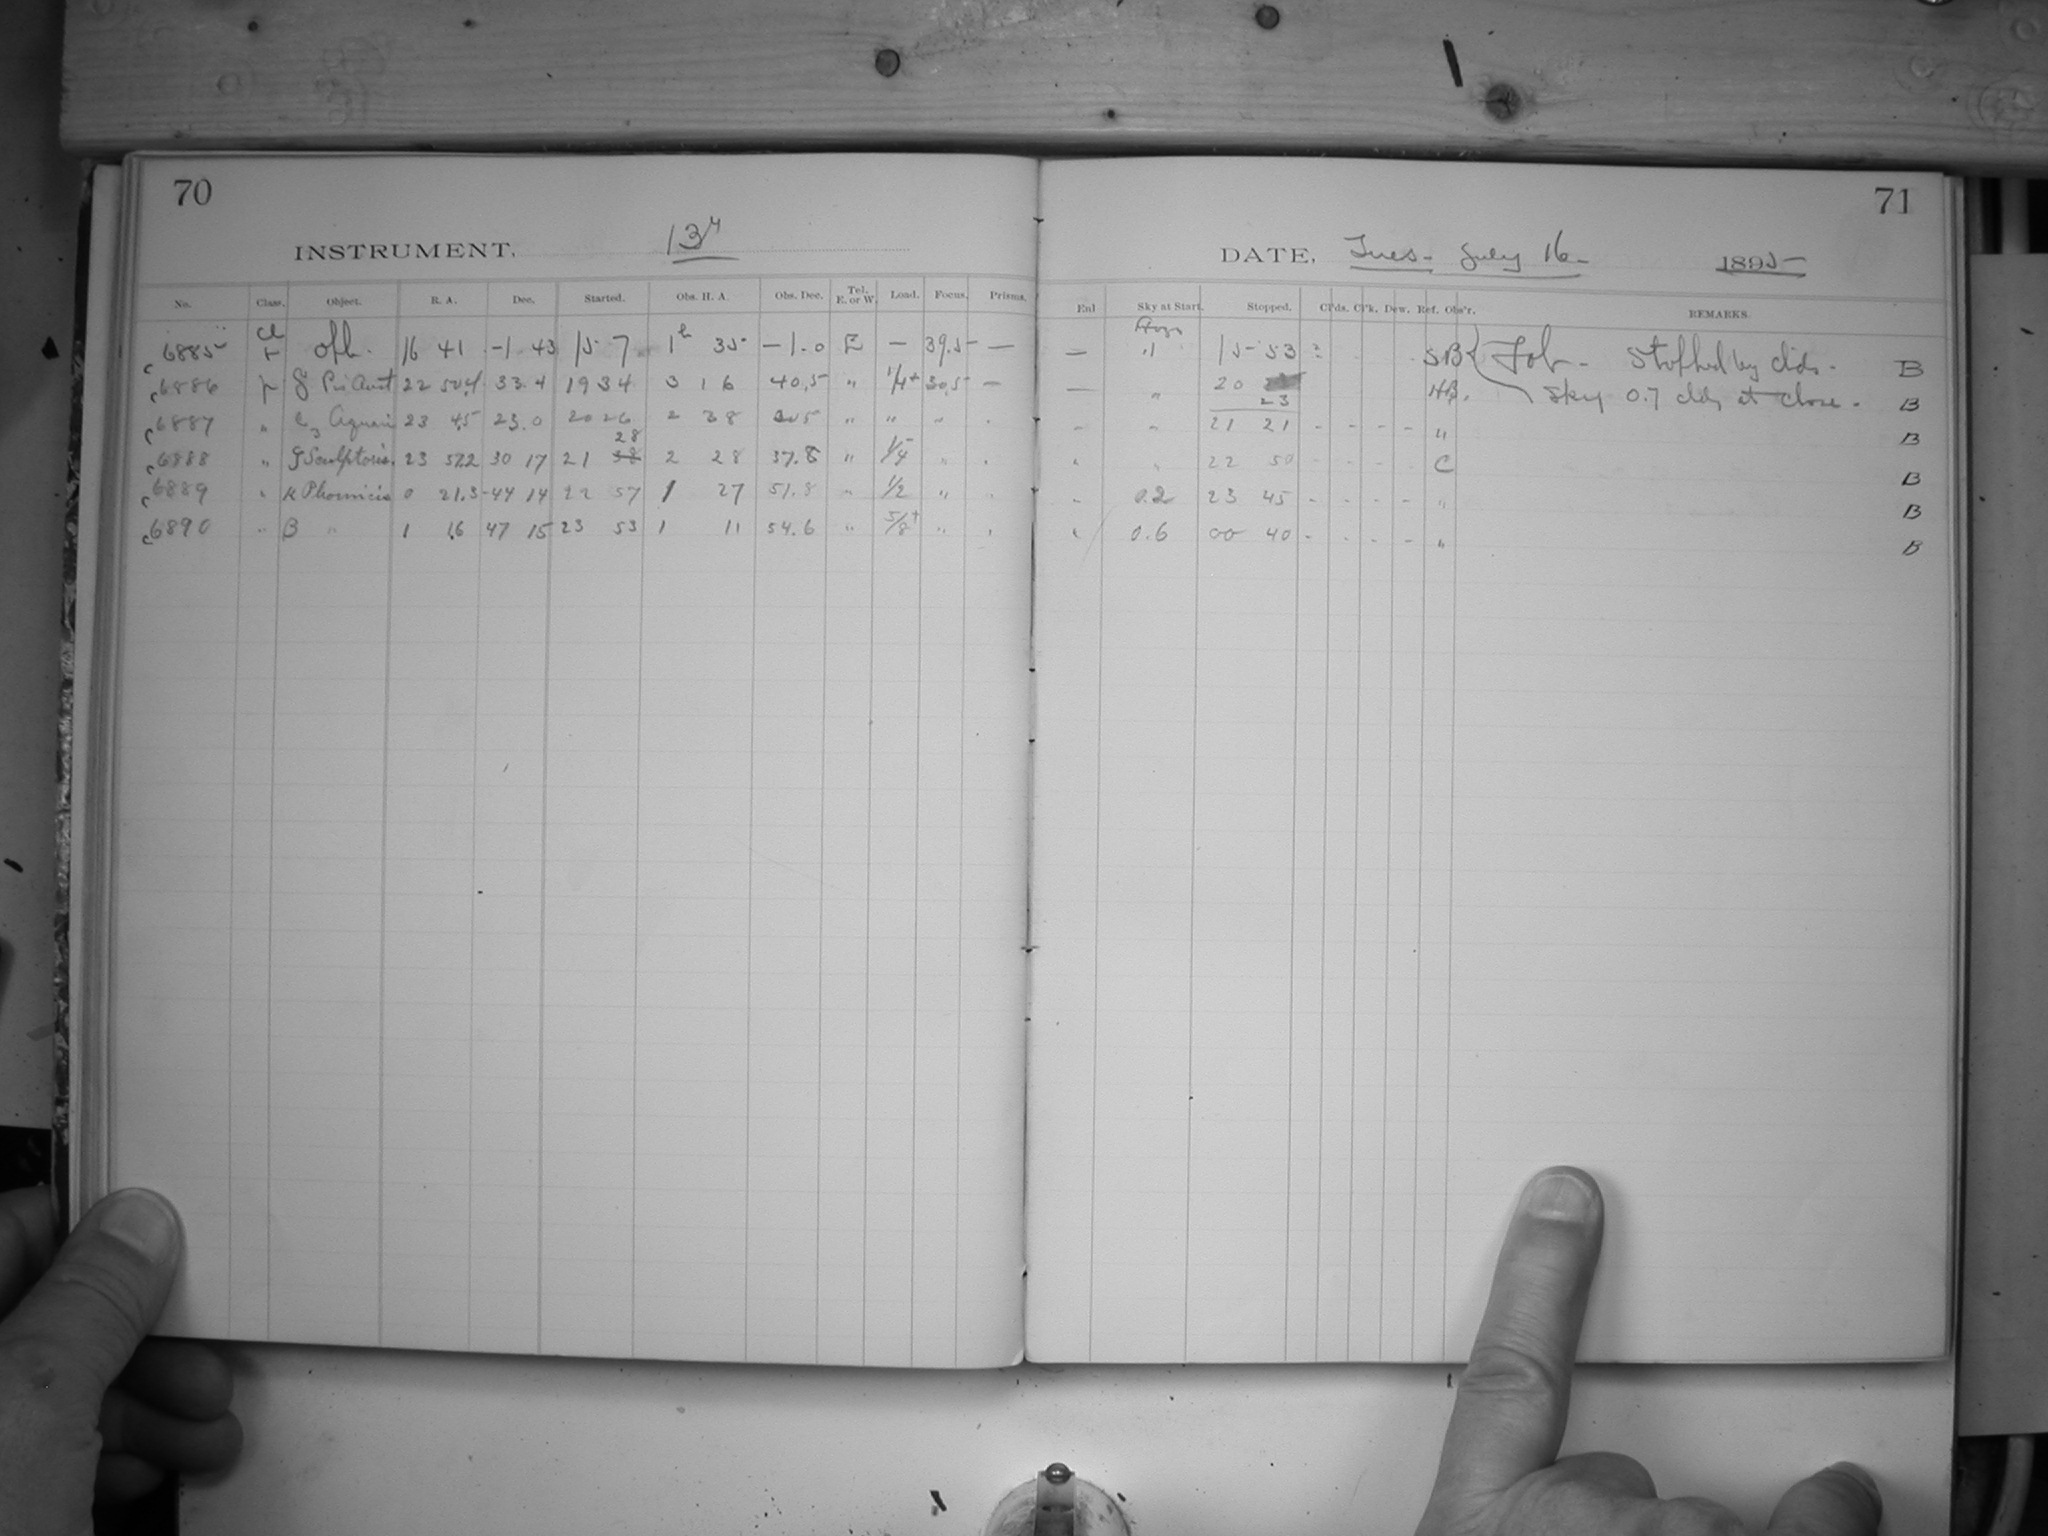 70
INSTRUMENT, 13"
No. Class. Object. R. A. Dec. Started. Obs. H. A. Obs. Dec. Tel. E. or W. Load. Focus. Prisms.
c6885 Cl r Oph. 16 41 -1 43 15 7 1h 35 -1.0 E — 39.5 —
c6886 r Pis Aust 22 50.4 33.4 19 34 3 16 40.5 " 1/4+ 30.5 —
c6887 " Aquarii 23 4.5 23.0 20 26 2 38 " " "
c6888 " Sculptoris 23 57.2 30 17 21 28 38 2 28 37.8 " 1/4 "
c6889 " K Phoenicis 0 21.3 -44 14 22 57 1 27 51.8 " 1/2 "
c6890 " B " 1 1.6 47 15 23 53 1 11 54.6 " 5/8+ "
71
DATE, Tues - July 16 - 1895
Enl Sky at Start. Stopped. Cl'ds. Cl'k. Dew. Ref. Obs'r. REMARKS.
— " 15 53 ? SB Stopped by clds - B
— " 20 23 HB. Sky 0.7 cldy at close - B
" " 21 21 - - - - " B
" " 22 50 - - - C B
" 0.2 23 45 - - - - " B
" 0.6 00 40 - - - - " B